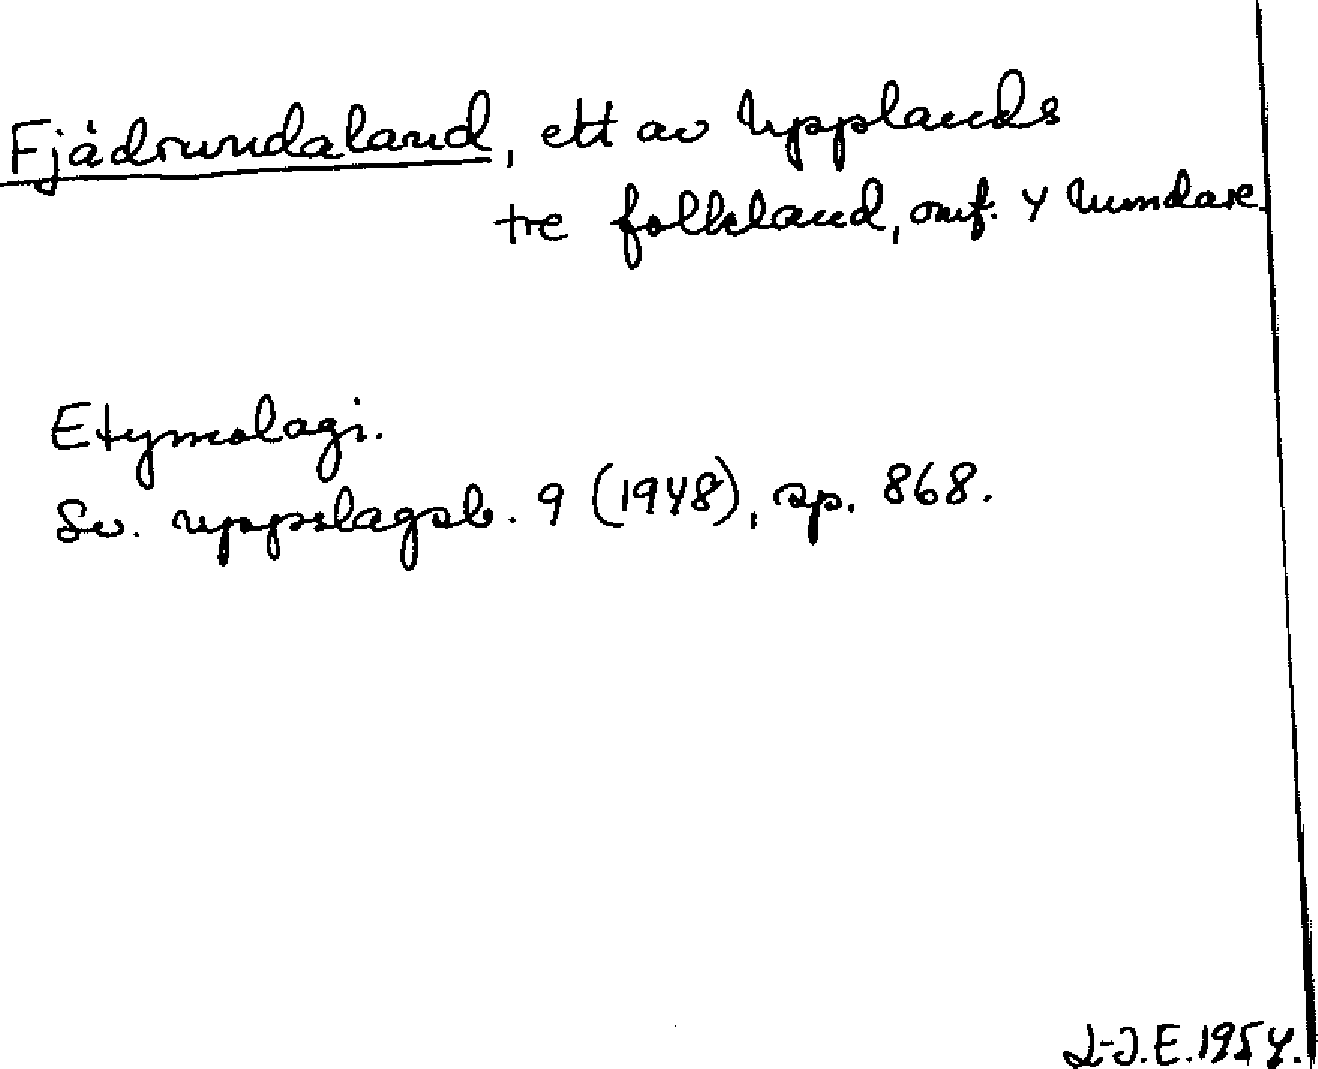 Fjädrundaland, ett av Upplands
tre folkland, omf. 4 hundare.
Etymologi.
Sv. uppslagsb. 9 (1948), sp. 868.
L-J.E. 1954.